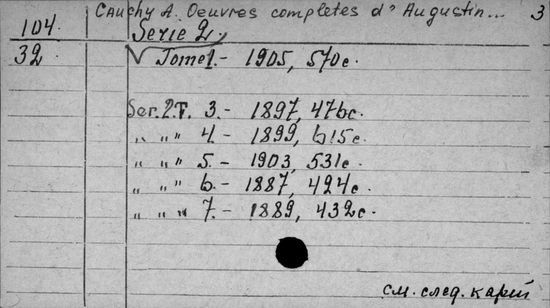 Cauchy A. Oeuvres completes d'Augustin... 3
104. Serie 2.
32 √ Tome 1. - 1905, 570 с.
Ser. 2. T. 3. - 1897, 476 с.
„ „ „ 4. - 1899, 615 с.
„ „ „ 5. - 1903, 531 с.
„ „ „ 6. - 1887, 424 с.
„ „ „ 7. - 1889, 432 с.
см. след. карт